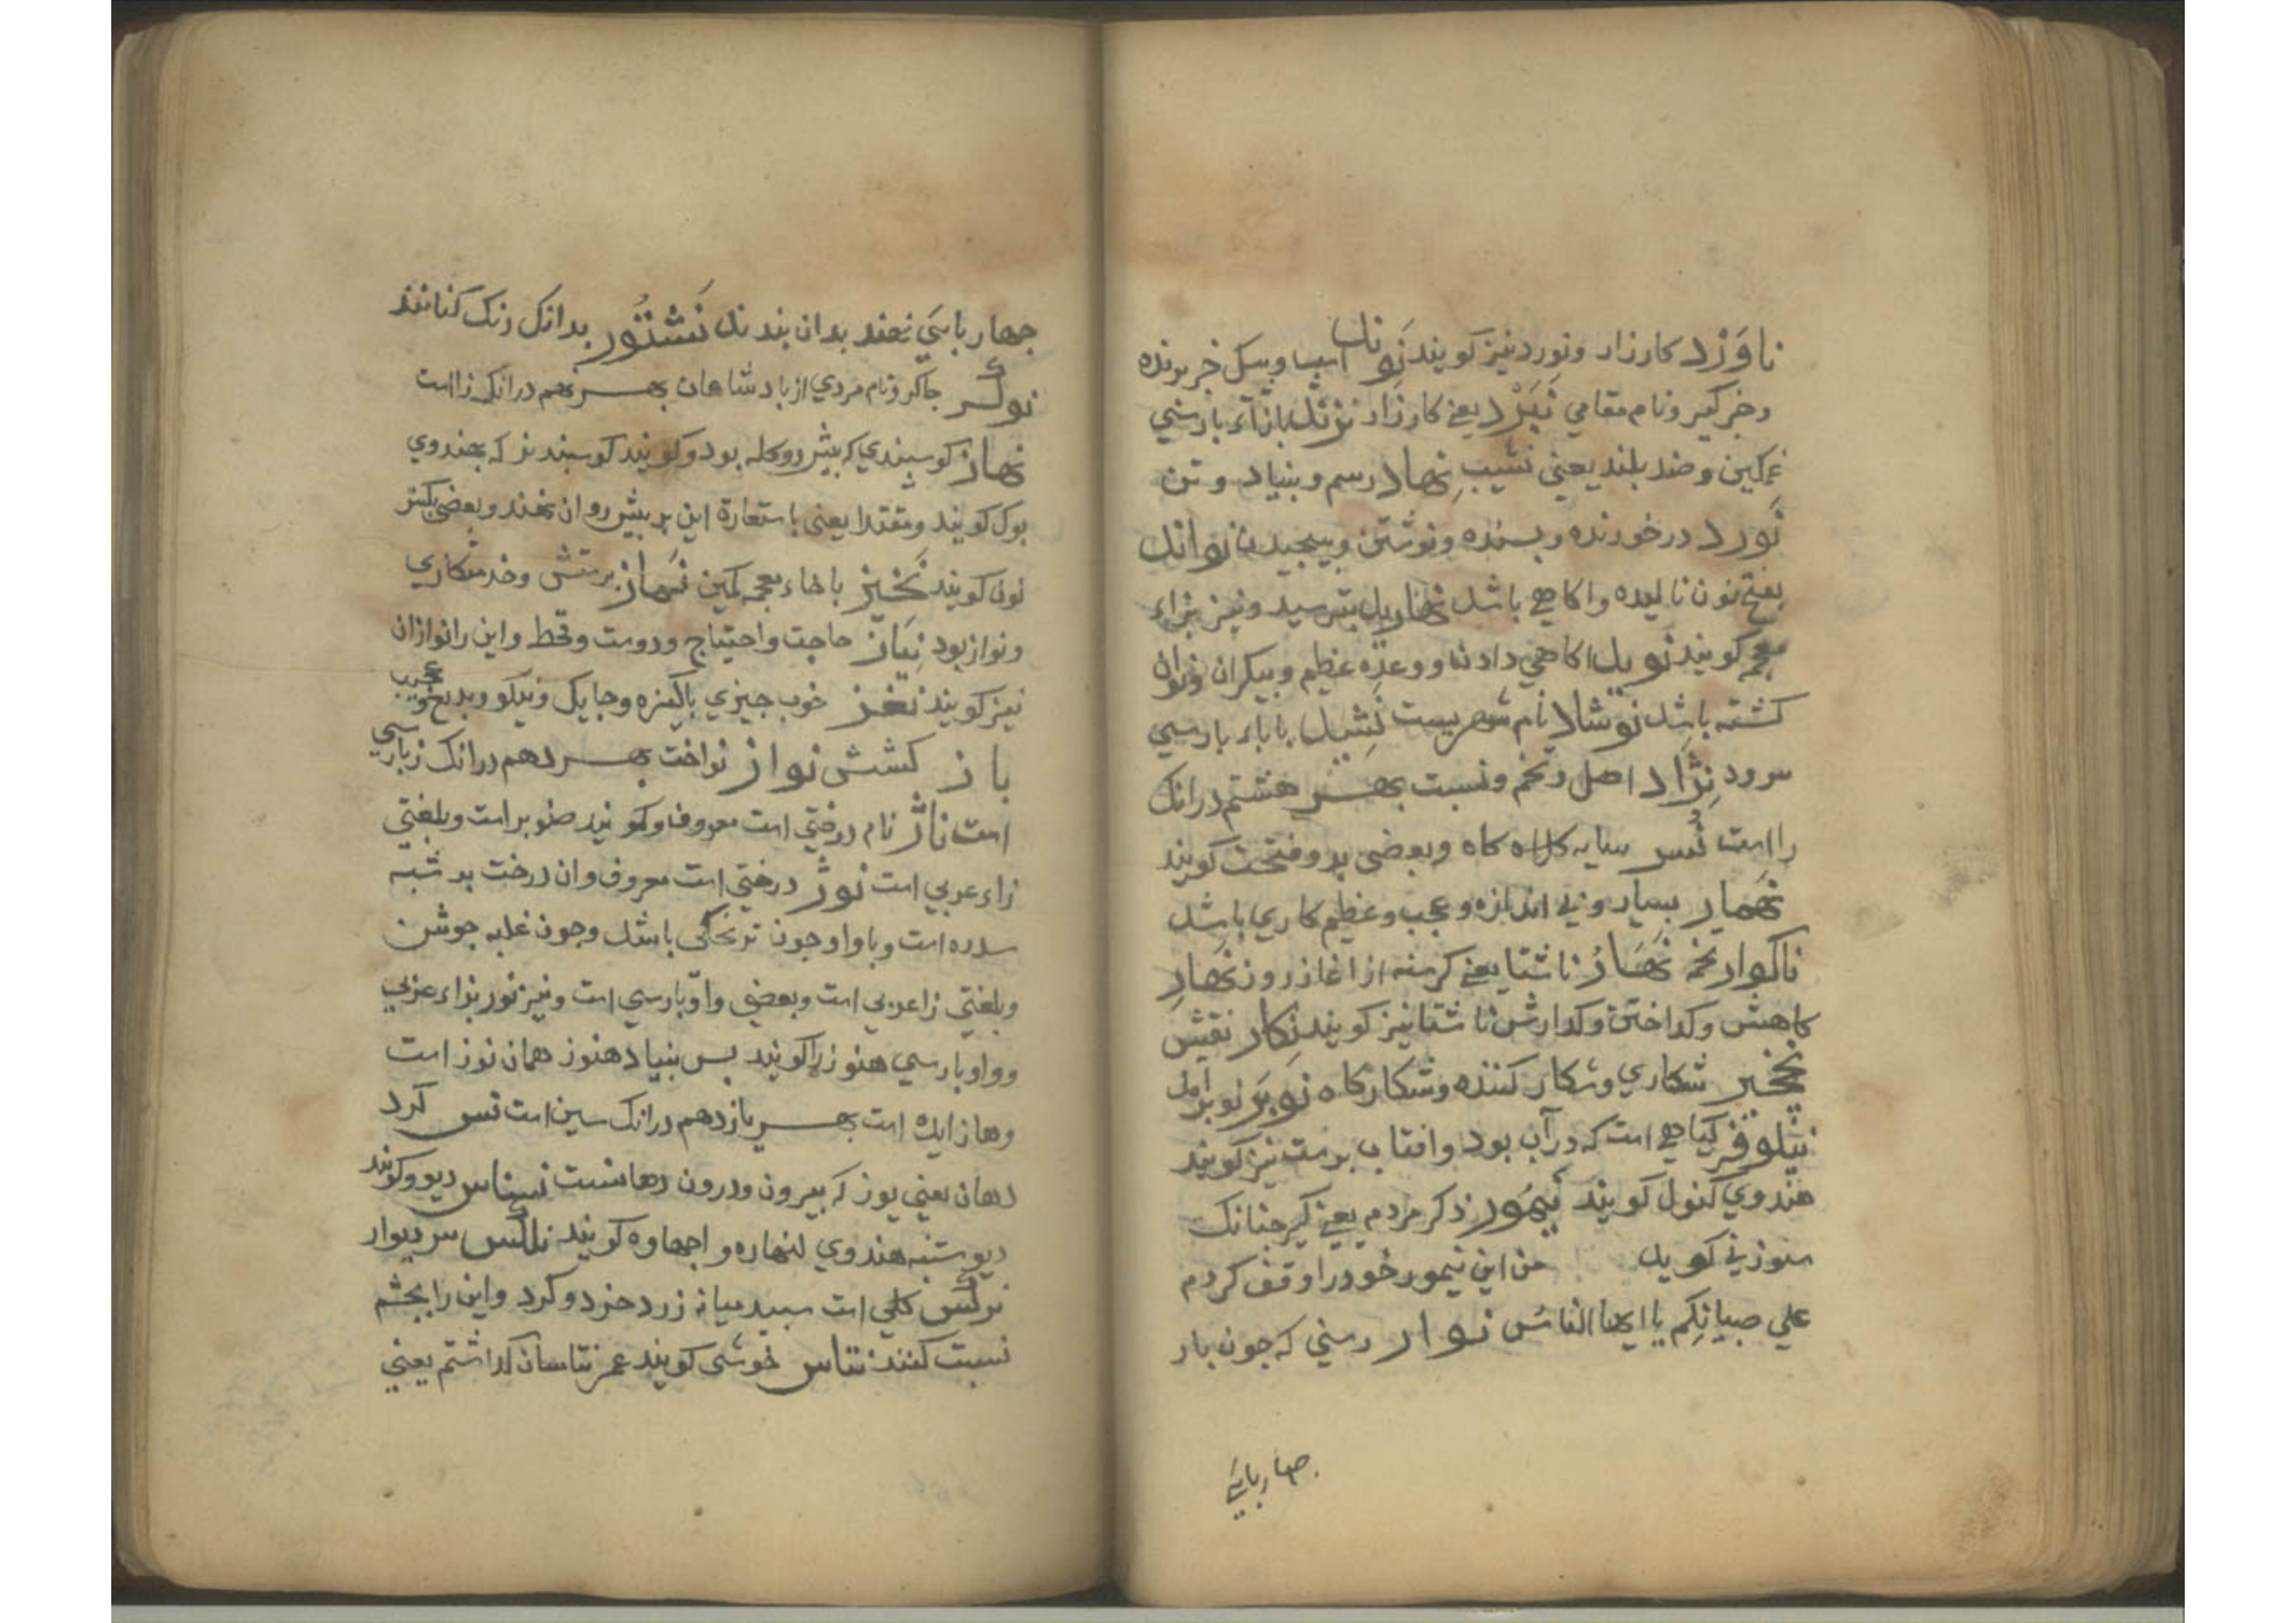 ناوَرْد کارزار ونورد نیز کویند نَوند اسب وسک خبر برنده
وخبرکیر ونام مقامي نَبَرْد یعنے کارزار نژند بازآء بارسي
غمکین وضد بلند یعني نشیب نِهاد رسم وبنیاد وتن
نَورد درخورنده وبسنده ونوشتن وبیچیدن نواند
بفتح نون نالیده واکاهے باشد نهارید بترسید ونیز بزاء
معجمه کویند نوید اکاهي دادن ووعده عظیم وبیکران
کشته باشد نوشاد نام شهریست نشید باباء بارسي
سرود نِژاد اصل وتخم ونسبت بهـــر هشتم درانک
رااست نسر سایه کلاه کاه وبعضی بدو فتحت کویند
نهمار بسیار وبي اندازه وعجب وعظیم کاري باشد
ناکوار تخمه نَهار ناشتا یعنے کرسنه از اغاز روز نهار
کاهش وکداختن وکدارش ناشتا نیز کویند نکار نقش
نخچیر شکاري وشکار کننده وشکارکاه نوبَر نوبر امد
نیلوفر کیاهے است که در آب بود وافتاب برست نیز کویند
هندوي کنول کویند نیمور ذکر مردم یعنے کیر چنانک
سوزني کوید من این نیمور خود را وقف کردم
علي صبیانِکم یا ایها الناسُ نوار رسني که جون بار
جهارباي
جهارباي نهند بدان بندند نَشتور بدانک رنک کنانند
نوکر جاکر ونام مردي از بادشاهان بهـــر نهم درانک زااست
نهاز کوسبندي که بیش رو کله بود وکویند کوسبند نر که بهندوي
بوک کویند ومقتدا یعنی باستعارة این بر بیش روان نهند وبعضی بکسر
نون کویند نخیز باخاء معجمه کمین نماز برستش وخدمتکاري
ونواز بود نیاز حاجت واحتیاج ودوست وقحط واین رانوازان
نیز کویند نغز خوب جیزي باکیزه وجابک ونیکو وبدیع وعجیب
باز کشش نواز نواخت بهـــر دهم درانک زبارسي
است ناژ نام درختي است معروف وکویند صنوبر است وبلغتي
زاء عربي است نوژ درختي است معروف وان درخت بر شبه
سدره است وباواو جون ترنجکی باشد وجون غلبه جوشن
وبلغتي زا عربي است وبعضی واو بارسي است ونیز نوز بزاء عربي
وواو بارسي هنوز راکویند بس بنیاد هنوز همان نوز است
وها زایده است بهـــر یازدهم درانک سین است نس کرد
دهان یعني بوز که بیرون ودرون دهانست نسناس دیو وکویند
دیو ستنبه هندوي کویند سر دیوار
نرکس کلي است سبید میانه زرد خرد وکرد واین را بجشم
نسبت کنند نناس خوشی کویند عمر نتاسان کداشتم یعني